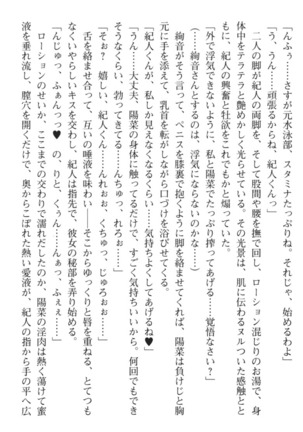 「ふふっ……さすが元水泳部、スタミナたっぷりね。それじゃ、始めるわよ」
「う、うん……頑張るからね、紀人くんっ」
二人の脚が紀人の両脚を、そして股間や腰を撫で回し、ローション混じりのお湯で、身
体中をテラテラと艶めかしく光らせている。その光景は、肌に伝わるヌルついた感触とと
もに、紀人の興奮と牡液をこれでもかと煽っていた。
「外で浮気できないように、私と陽菜でたっぷり搾ってあげる……覚悟なさい？」
（――絢音さんとするのは、浮気にならないのかな……）
絢音がそう言って、ペニスを膝裏で抱くように脚を絡ませてくれば、陽菜は負けじと胸
元に手を添えて、乳首を転がしながら口づけを浴びせてくる。
「紀人くんが、私しか見えなくなるくらい……気持ちよくしてあげるね♥」
「うん……大丈夫、陽菜の身体に触ってるだけで、すごく気持ちいいから……何回でもでき
そうなくらい、勃ってきてる……んちゅっ、れろぉ……」
「そぉ？　嬉しい、紀人くん……んれぉぉ、くちゅっ、じゅろぉぉ……」
舌を絡ませ合って、互いの唾液を味わい……そこからゆっくりと唇を重ねる、とてつも
なくいやらしいキスを交わし、紀人は指先で、彼女の秘部を弄り始める。
「んじゅっっ、ふぁんっっ♥　の、りと、くぅん……んぁっ、ふぇぇ……」
ローションのせいか、ここまでの交わりで濡れたしたのか、陽菜の淫肉は熱く蕩けて蜜
液を垂れ流し、膣穴を開くだけで、奥からこぼれた熱い愛液が、紀人の指から手の平へ広